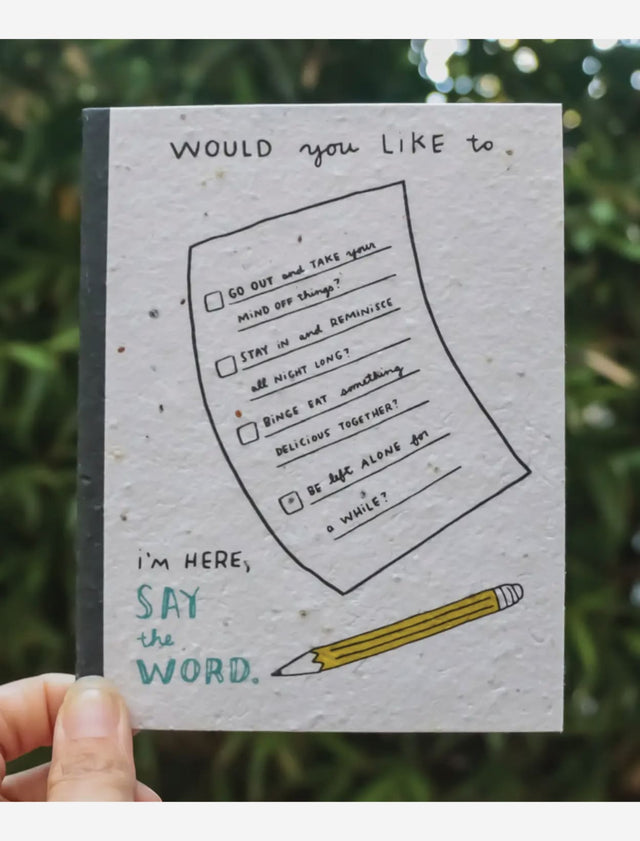 WOULD you LiKE to
GO OUT and TAKE your
MiND OFF things?
STAY iN and REMiNiSCE
all NiGHT LONG?
BiNGE EAT something
DELiCiOUS TOGETHER?
BE left ALONE for
a WHiLE?
i'M HERE,
SAY
the
WORD.